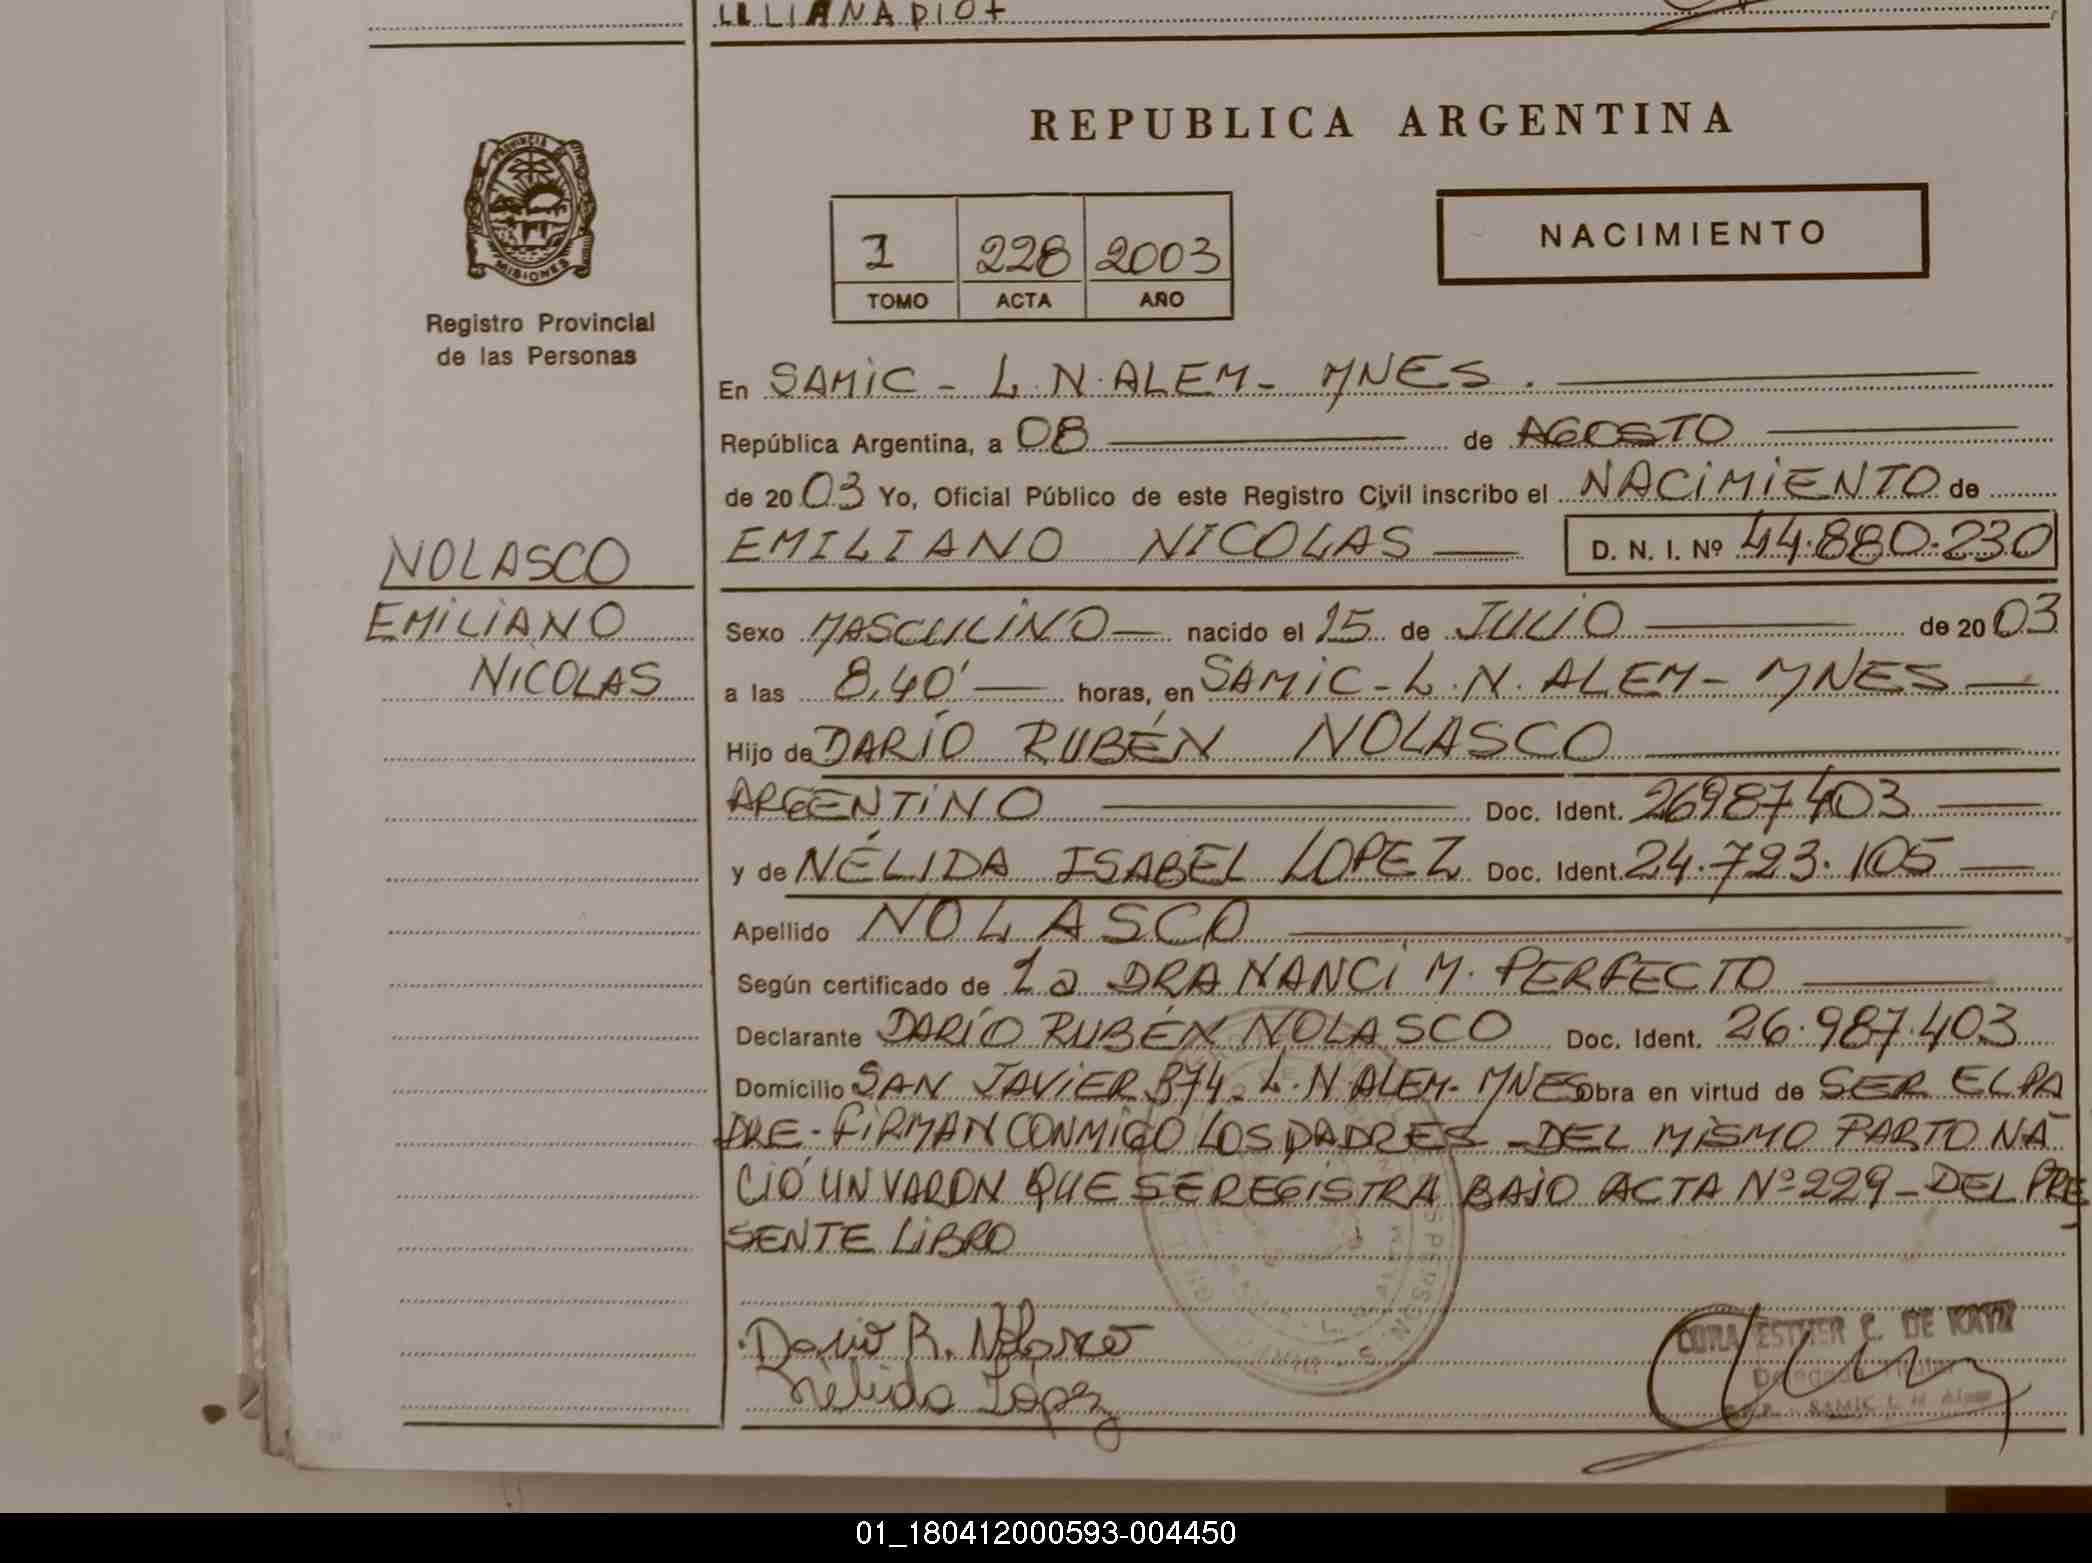 LILIANA PIOT
REPUBLICA ARGENTINA
PROVINCIA DE
MISIONES
Registro Provincial
de las Personas
1 228 2003
TOMO ACTA AÑO
NACIMIENTO
En SAMiC - L.N. ALEM - MNES.
República Argentina, a 08 de AGOSTO
de 2003 Yo, Oficial Público de este Registro Civil inscribo el NACiMiENTO de
EMILIANO NICOLÁS D. N. I. Nº 44.880.230
NOLASCO
EMiLiANO
NiCOLAS
Sexo MASCULiNO nacido el 15 de JULiO de 2003
a las 8,40' horas, en SAMiC - L.N. ALEM - MNES
Hijo de DARÍO RUBÉN NOLASCO
ARGENTiNO Doc. Ident. 26987403
y de NÉLIDA ISABEL LOPEZ Doc. Ident. 24.723.105
Apellido NOLASCO
Según certificado de La DRA NANCi M. PERFECTO
Declarante DARÍO RUBÉN NOLASCO Doc. Ident. 26.987.403
Domicilio SAN JAVIER 874 - L.N ALEM - MNES Obra en virtud de SER EL PA
DRE - FiRMAN CONMiGO LOS PADRES - DEL MiSMO PARTO NA
CIÓ UN VARON QUE SE REGiSTRA BAJO ACTA Nº 229 - DEL PRE
SENTE LiBRO
Dario R. Nolasco
Nelida López
ESTHER C. DE
SAMIC L N Alem
01_180412000593-004450